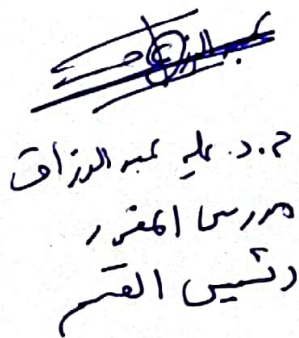 م.د. علي عبد الرزاق
مدرس المقرر
رئيس القسم